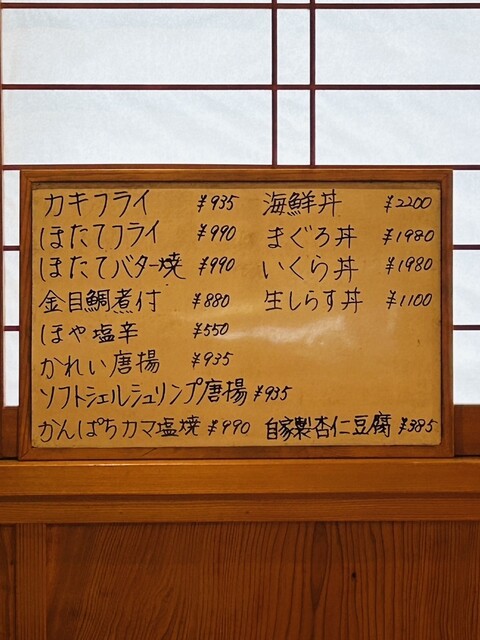 カキフライ ¥935
ほたてフライ ¥990
ほたてバター焼 ¥990
金目鯛煮付 ¥880
ほや塩辛 ¥550
かれい唐揚 ¥935
ソフトシェルシュリンプ唐揚 ¥935
かんぱちカマ塩焼 ¥990
海鮮丼 ¥2200
まぐろ丼 ¥1980
いくら丼 ¥1980
生しらす丼 ¥1100
自家製杏仁豆腐 ¥385